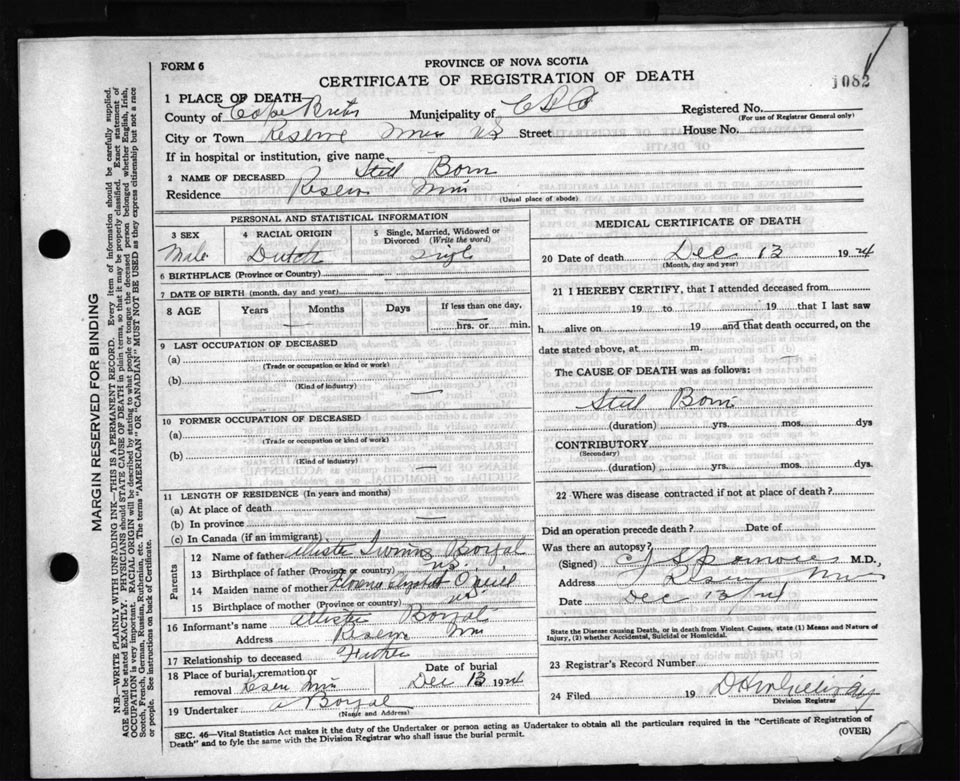 FORM 6
PROVINCE OF NOVA SCOTIA
CERTIFICATE OF REGISTRATION OF DEATH
1082
1 PLACE OF DEATH
County of Cape Breton Municipality of C B Registered No.
(For use of Registrar General only)
City or Town Reserve Mines NS Street House No.
If in hospital or institution, give name
2 NAME OF DECEASED Still Born
Residence Reserve Mines
(Usual place of abode)
PERSONAL AND STATISTICAL INFORMATION
3 SEX Male
4 RACIAL ORIGIN Dutch
5 Single, Married, Widowed or Divorced (Write the word) Single
6 BIRTHPLACE (Province or Country)
7 DATE OF BIRTH (month, day and year)
8 AGE Years Months Days If less than one day, hrs. or min.
9 LAST OCCUPATION OF DECEASED
(a)
(Trade or occupation or kind or work)
(b)
(Kind of industry)
10 FORMER OCCUPATION OF DECEASED
(a)
(Trade or occupation or kind of work)
(b)
(Kind of industry)
11 LENGTH OF RESIDENCE (In years and months)
(a) At place of death
(b) In province
(c) In Canada (if an immigrant)
Parents
12 Name of father Allister
13 Birthplace of father (Province or country) NS.
14 Maiden name of mother Florence Elizabeth O'Neill
15 Birthplace of mother (Province or country) NS.
16 Informant's name Allister
Address Reserve Mines
17 Relationship to deceased Father
18 Place of burial, cremation or removal Reserve Mines
Date of burial Dec 13 1924
19 Undertaker A
(Name and Address)
MEDICAL CERTIFICATE OF DEATH
20 Date of death Dec 13 1924
(Month, day and year)
21 I HEREBY CERTIFY, that I attended deceased from
19 to 19 that I last saw
h alive on 19 and that death occurred, on the
date stated above, at m.
The CAUSE OF DEATH was as follows:
Still Born
(duration) yrs. mos. dys
CONTRIBUTORY
(Secondary)
(duration) yrs. mos. dys.
22 Where was disease contracted if not at place of death?
Did an operation precede death? Date of
Was there an autopsy?
(Signed) M.D.,
Address Reserve Mines
Date Dec 13/24
State the Disease causing Death, or in death from Violent Causes, state (1) Means and Nature of Injury, (2) whether Accidental, Suicidal or Homicidal.
23 Registrar's Record Number
24 Filed 19
Division Registrar
SEC. 46—Vital Statistics Act makes it the duty of the Undertaker or person acting as Undertaker to obtain all the particulars required in the "Certificate of Registration of Death" and to fyle the same with the Division Registrar who shall issue the burial permit.
(OVER)
MARGIN RESERVED FOR BINDING
N.B.—WRITE PLAINLY WITH UNFADING INK—THIS IS A PERMANENT RECORD. Every item of information should be carefully supplied.
AGE should be stated EXACTLY. PHYSICIANS should STATE CAUSE OF DEATH in plain terms, so that it may be properly classified. Exact statement of
OCCUPATION is very important. RACIAL ORIGIN will be described by stating to what people or tongue the deceased person belonged whether English, Irish,
Scotch, French, German, Russian, Ruthenian, etc. The terms "AMERICAN" OR "CANADIAN" MUST NOT BE USED as they express citizenship but not a race
or people. See instructions on back of Certificate.